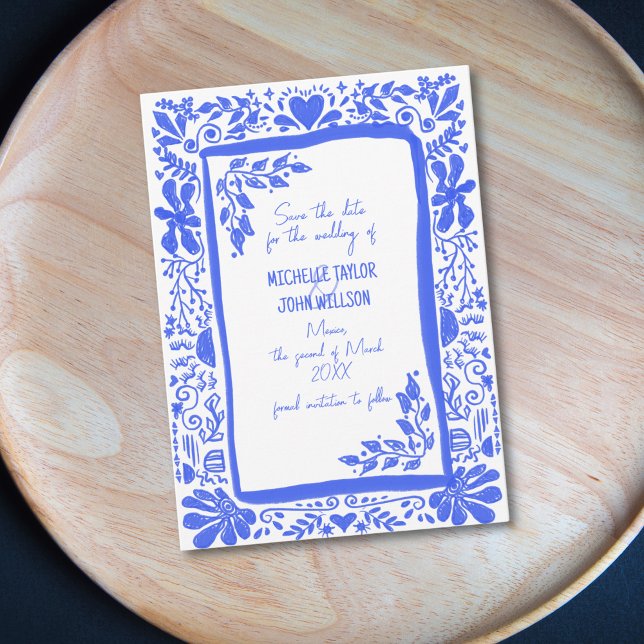 Save the date
for the wedding of
MICHELLE TAYLOR
&
JOHN WILLSON
Mexico,
the second of March
20XX
formal invitation to follow